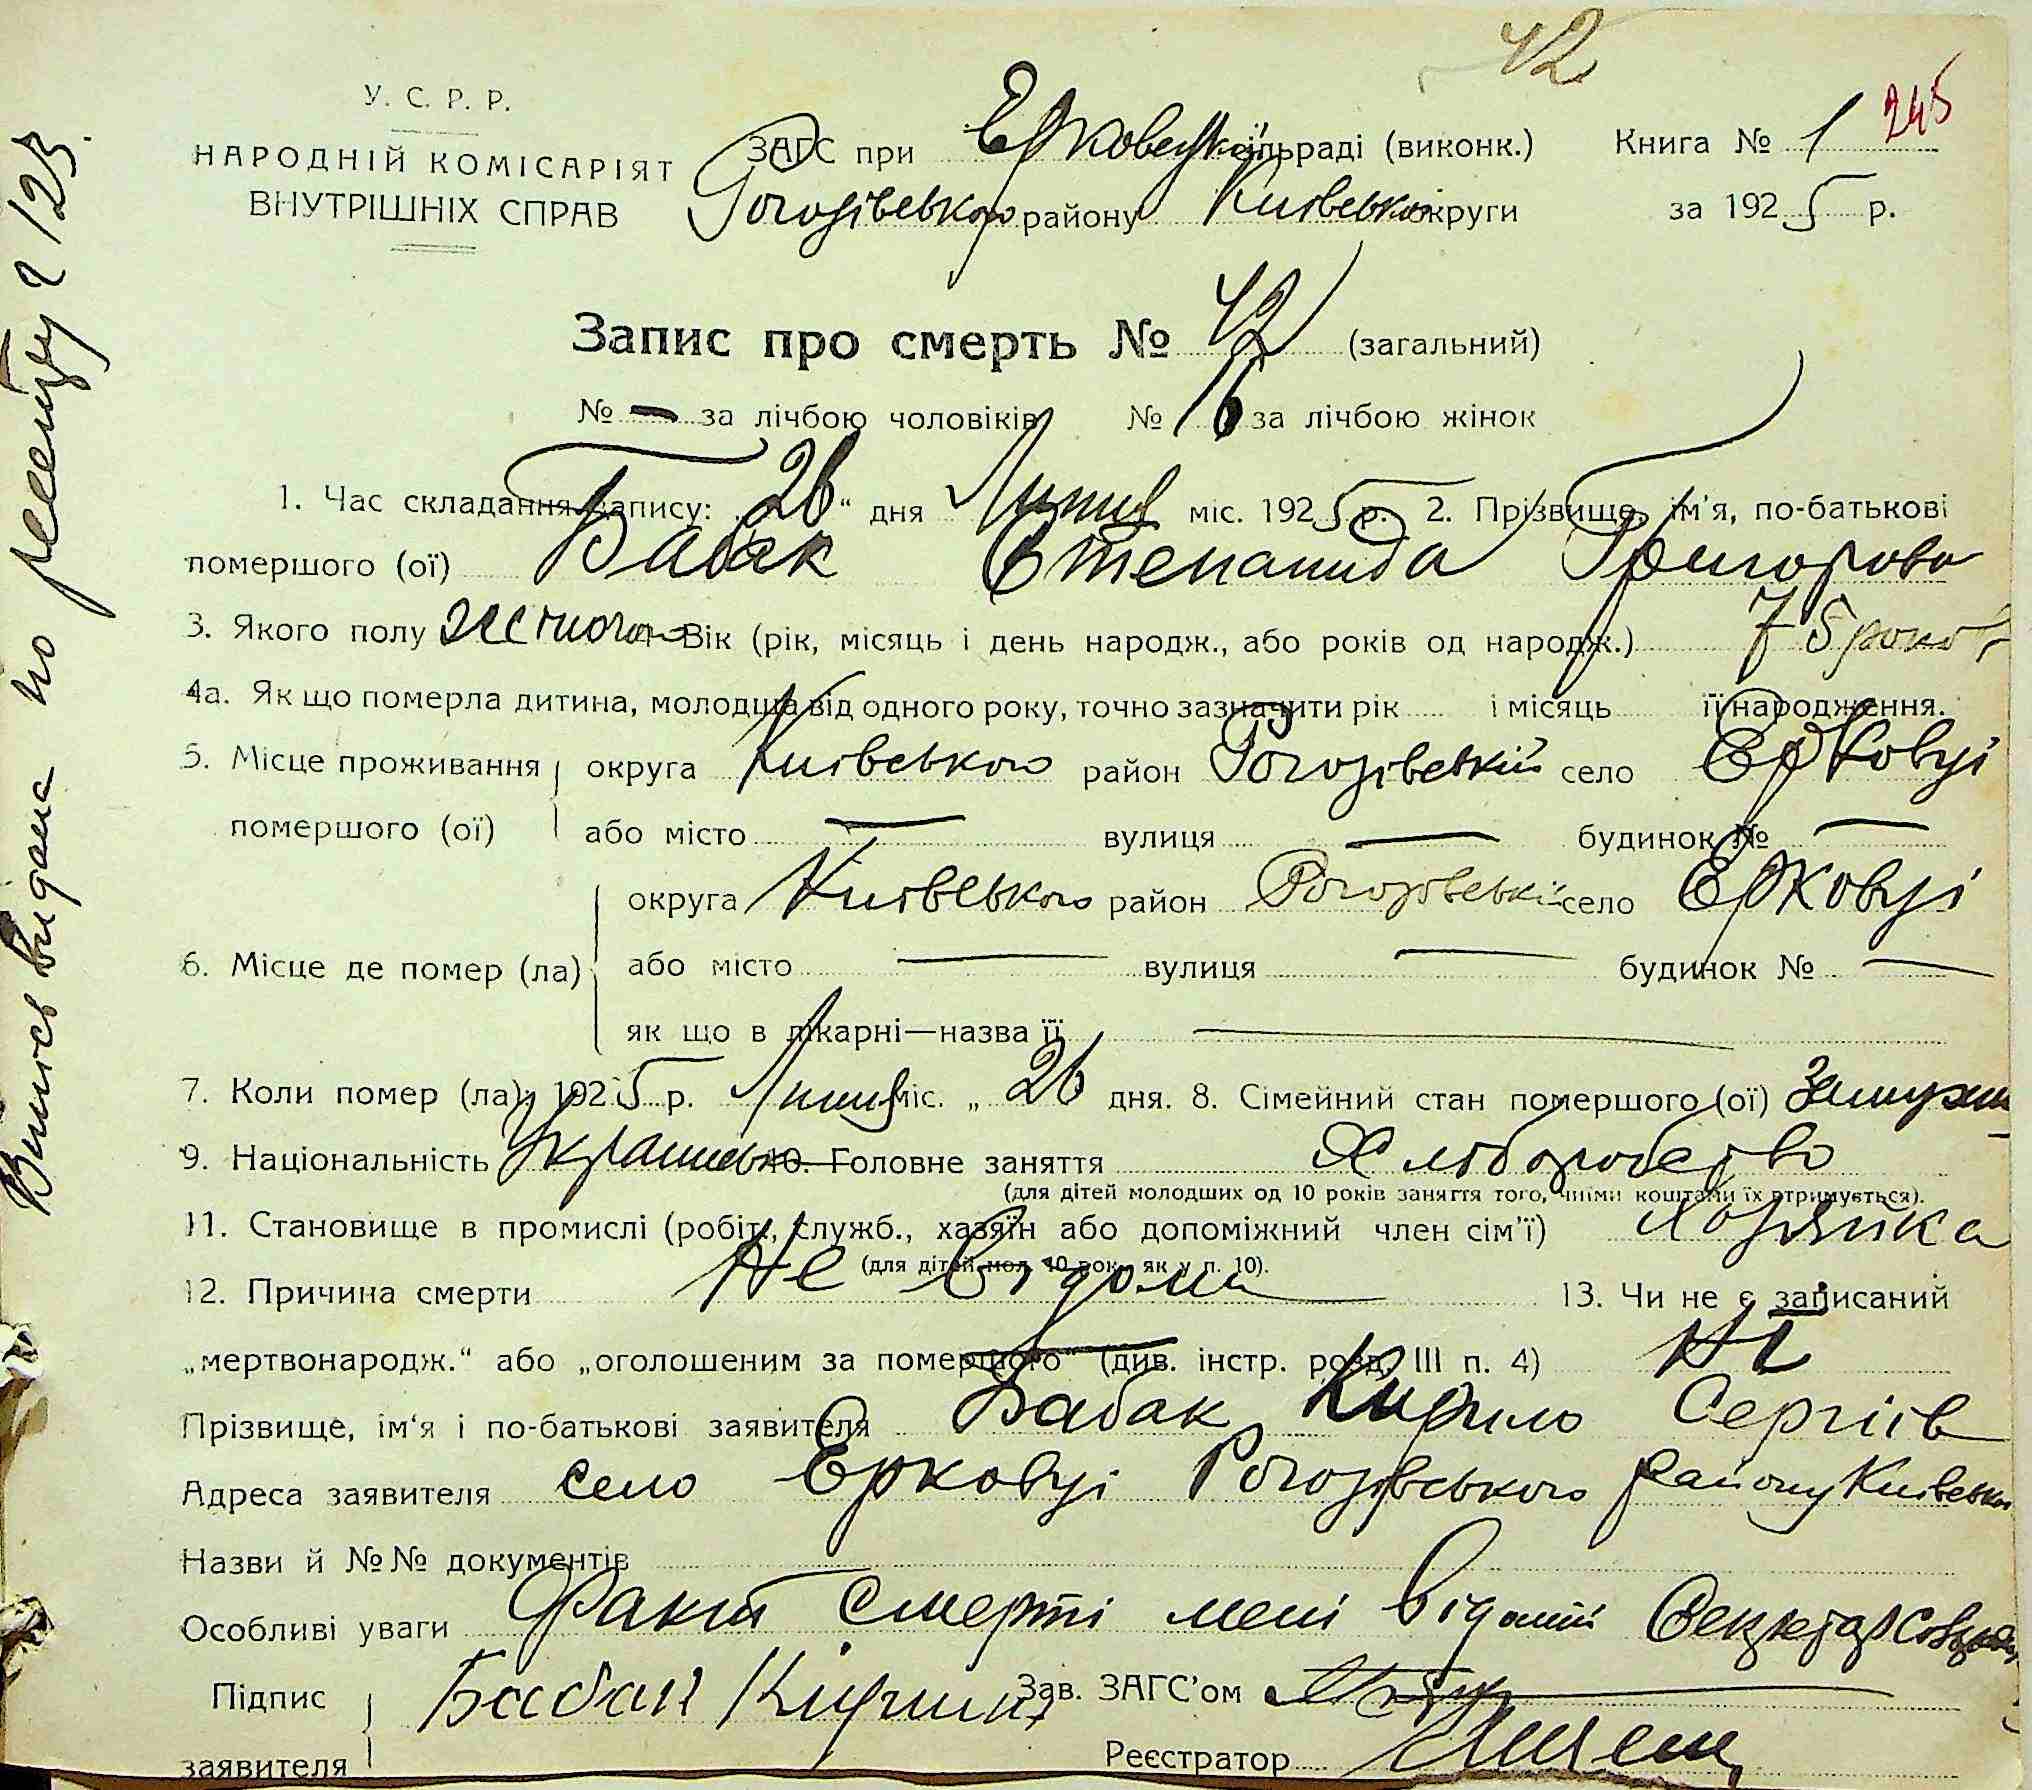 42
245
У. С. Р. Р.
НАРОДНІЙ КОМІСАРІЯТ
ВНУТРІШНІХ СПРАВ
ЗАГС при Ерковецькій сільраді (виконк.) Книга № 1
Рогозівського району Київської округи за 1925 р.
Запис про смерть № 42 (загальний)
№ — за лічбою чоловіків № 16 за лічбою жінок
1. Час складання запису: „26“ дня Липня міс. 1925 р. 2. Прізвище, ім'я, по-батькові
помершого (ої) Бабак Степанида Григорова
3. Якого полу жіночого 4. Вік (рік, місяць і день народж., або років од народж.) 75 років
4а. Як що померла дитина, молодща від одного року, точно зазначити рік і місяць її народження.
5. Місце проживання округа Київського район Рогозівський село Ерковці
помершого (ої) або місто — вулиця — будинок № —
округа Київського район Рогозівський село Ерковці
6. Місце де помер (ла) або місто — вулиця — будинок № —
як що в лікарні—назва її —
7. Коли помер (ла) 1925 р. Липня міс. „26 дня. 8. Сімейний стан помершого (ої) Замужня
9. Національність Українська 10. Головне заняття Хліборобство
(для дітей молодших од 10 років заняття того, чиїми коштами їх втримується).
11. Становище в промислі (робіт., служб., хазяїн або допоміжний член сім'ї) Хазяйка
(для дітей мол. 10 рок., як у п. 10).
12. Причина смерти Не відома 13. Чи не є записаний
„мертвонародж.“ або „оголошеним за помершого“ (див. інстр. розд. III п. 4) Ні
Прізвище, ім'я і по-батькові заявителя Бабак Кирило Сергіїв
Адреса заявителя село Ерковці Рогозівського району Київської
Назви й №№ документів
Особливі уваги Факт смерті мені відомий
Підпис заявителя Бабак Кирило Зав. ЗАГС'ом
Реєстратор
Випись видана по реєстру ч 123.